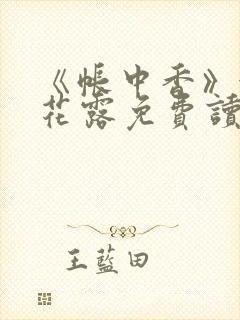 《帳中香》
花露免費讀
王藍田